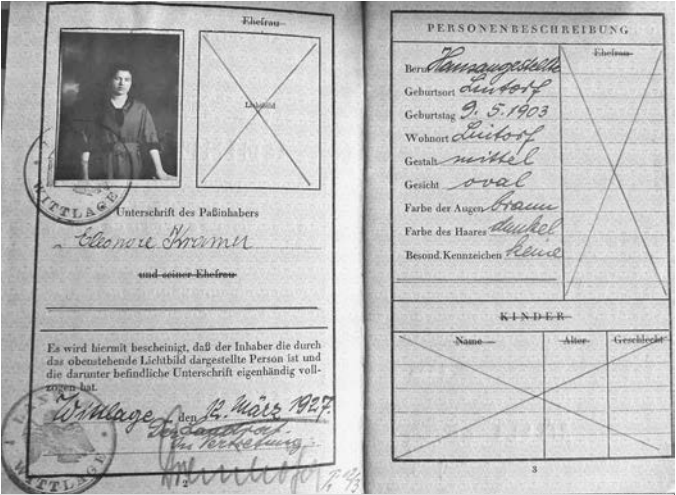 Ehefrau
Lichtbild
WITTLAGE
Unterschrift des Paßinhabers
Eleonore Kramer
und seiner Ehefrau
Es wird hiermit bescheinigt, daß der Inhaber die durch
das obenstehende Lichtbild dargestellte Person ist und
die darunter befindliche Unterschrift eigenhändig voll-
zogen hat.
Wittlage, den 12. März 1927.
Der Landrat.
In Vertretung:
WITTLAGE
2
PERSONENBESCHREIBUNG
Ehefrau
Beruf Hausangestellte
Geburtsort Lintorf
Geburtstag 9. 5. 1903
Wohnort Lintorf
Gestalt mittel
Gesicht oval
Farbe der Augen braun
Farbe des Haares dunkel
Besond. Kennzeichen keine
KINDER
Name Alter Geschlecht
3